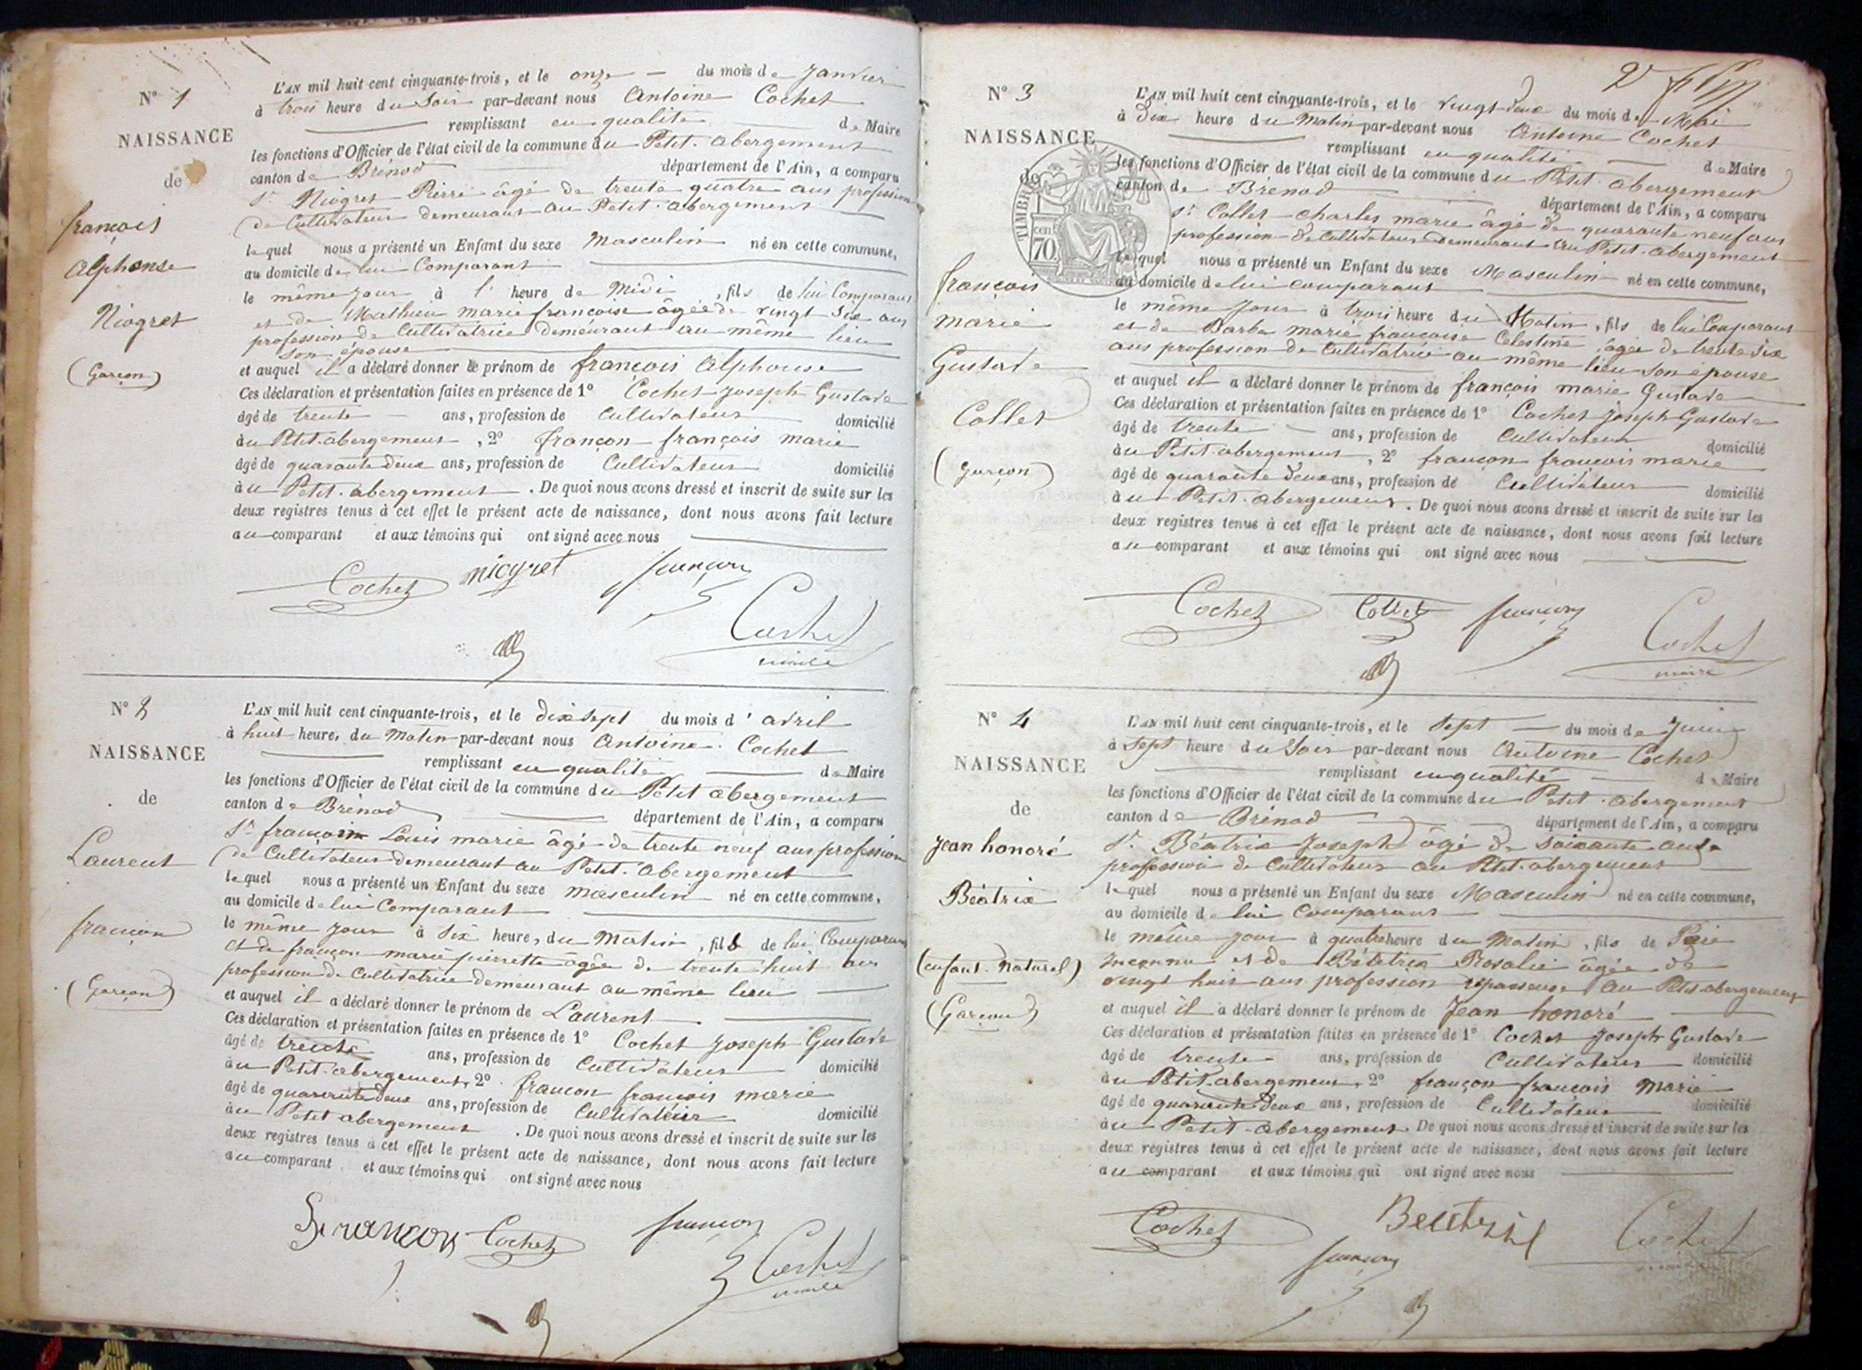 N° 1
NAISSANCE
de
françois
Alphonse
Niogret
(Garçon)
L'AN mil huit cent cinquante-trois, et le onze du mois de Janvier
à trois heure du Soir par-devant nous Antoine Cochet
remplissant en qualité de Maire
les fonctions d'Officier de l'état civil de la commune du Petit. abergement
canton de Brénod département de l'Ain, a comparu
Sr Niogret Pierre âgé de trente quatre ans profession
de Cultivateur demeurant au Petit. abergement
lequel nous a présenté un Enfant du sexe Masculin né en cette commune,
au domicile de lui Comparant
le même jour à l' heure de Midi, fils de lui Comparant
et de Mathieu marie françoise âgée de vingt Six ans
profession de Cultivatrice demeurant au même lieu
son épouse
et auquel il a déclaré donner le prénom de françois Alphonse
Ces déclaration et présentation faites en présence de 1° Cochet Joseph Gustave
âgé de trente ans, profession de Cultivateur domicilié
au Petit. abergement, 2° françon françois marie
âgé de quarante deux ans, profession de Cultivateur domicilié
au Petit. abergement. De quoi nous avons dressé et inscrit de suite sur les
deux registres tenus à cet effet le présent acte de naissance, dont nous avons fait lecture
au comparant et aux témoins qui ont signé avec nous
Cochet niogret françon
Cochet
maire
N° 2
NAISSANCE
de
Laurent
françon
(Garçon)
L'AN mil huit cent cinquante-trois, et le dix sept du mois d'avril
à huit heure, du Matin par-devant nous Antoine Cochet
remplissant en qualité de Maire
les fonctions d'Officier de l'état civil de la commune du Petit abergement
canton de Brénod département de l'Ain, a comparu
Sr françon Louis marie âgé de trente neuf ans profession
de Cultivateur demeurant au Petit. abergement
lequel nous a présenté un Enfant du sexe masculin né en cette commune,
au domicile de lui Comparant
le même jour à Six heure, du Matin, fils de lui Comparant
et de françon marie pierrette âgée de trente huit ans
profession de Cultivatrice demeurant au même lieu
et auquel il a déclaré donner le prénom de Laurent
Ces déclaration et présentation faites en présence de 1° Cochet Joseph Gustave
âgé de trente ans, profession de Cultivateur domicilié
au Petit. abergement, 2° françon françois marie
âgé de quarante deux ans, profession de Cultivateur domicilié
au Petit abergement. De quoi nous avons dressé et inscrit de suite sur les
deux registres tenus à cet effet le présent acte de naissance, dont nous avons fait lecture
au comparant et aux témoins qui ont signé avec nous
françon Cochet françon
Cochet
maire
N° 3
NAISSANCE
de
TIMBRE
70
cen
françois
marie
Gustave
Collet
(garçon)
L'AN mil huit cent cinquante-trois, et le vingt deux du mois de Mai
à Dix heure du Matin par-devant nous Antoine Cochet
remplissant en qualité de Maire
les fonctions d'Officier de l'état civil de la commune du Petit. abergement
canton de Brénod département de l'Ain, a comparu
Sr Collet Charles marie âgé de quarante neuf ans
profession de Cultivateur demeurant au Petit. abergement
lequel nous a présenté un Enfant du sexe Masculin né en cette commune,
au domicile de lui comparant
le même Jour à trois heure du Matin, fils de lui Comparant
et de Barbe marie françoise Célestine âgée de trente Six
ans profession de Cultivatrice au même lieu Son épouse
et auquel il a déclaré donner le prénom de françois marie Gustave
Ces déclaration et présentation faites en présence de 1° Cochet Joseph Gustave
âgé de trente ans, profession de Cultivateur domicilié
au Petit abergement, 2° françon françois marie
âgé de quarante deux ans, profession de Cultivateur domicilié
au Petit. abergement. De quoi nous avons dressé et inscrit de suite sur les
deux registres tenus à cet effet le présent acte de naissance, dont nous avons fait lecture
au comparant et aux témoins qui ont signé avec nous
Cochet Collet françon
Cochet
maire
N° 4
NAISSANCE
de
Jean honoré
Béatrix
(enfant. naturel)
(Garçon)
L'AN mil huit cent cinquante-trois, et le Sept du mois de Juin
à Sept heure du Soir par-devant nous Antoine Cochet
remplissant en qualité de Maire
les fonctions d'Officier de l'état civil de la commune du Petit. abergement
canton de Brénod département de l'Ain, a comparu
Sr Béatrix Joseph âgé de Soixante ans
profession de Cultivateur au Petit. abergement
lequel nous a présenté un Enfant du sexe Masculin né en cette commune,
au domicile de lui Comparant
le même jour à quatre heure du Matin, fils de Père
inconnu et de Béatrix Rosalie âgée de
vingt huit ans profession repasseuse au Petit abergement
et auquel il a déclaré donner le prénom de Jean honoré
Ces déclaration et présentation faites en présence de 1° Cochet Joseph Gustave
âgé de trente ans, profession de Cultivateur domicilié
au Petit. abergement, 2° françon françois Marie
âgé de quarante Deux ans, profession de Cultivateur domicilié
au Petit. abergement. De quoi nous avons dressé et inscrit de suite sur les
deux registres tenus à cet effet le présent acte de naissance, dont nous avons fait lecture
au comparant et aux témoins qui ont signé avec nous
Cochet Beatrix Cochet
françon